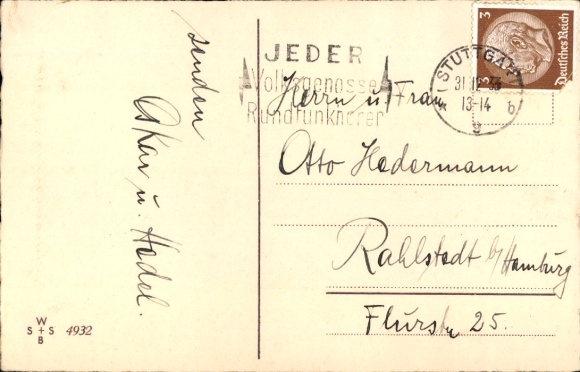 senden
Oskar u. Hedel.
W
S + S
B
4932
JEDER
Volksgenosse
Rundfunkhörer
STUTTGART
31.12.33
13-14
b
9
3
3
Deutsches Reich
Herrn u. Frau
Otto Hedermann
Rahlstedt b/Hamburg
Flurstr 25.